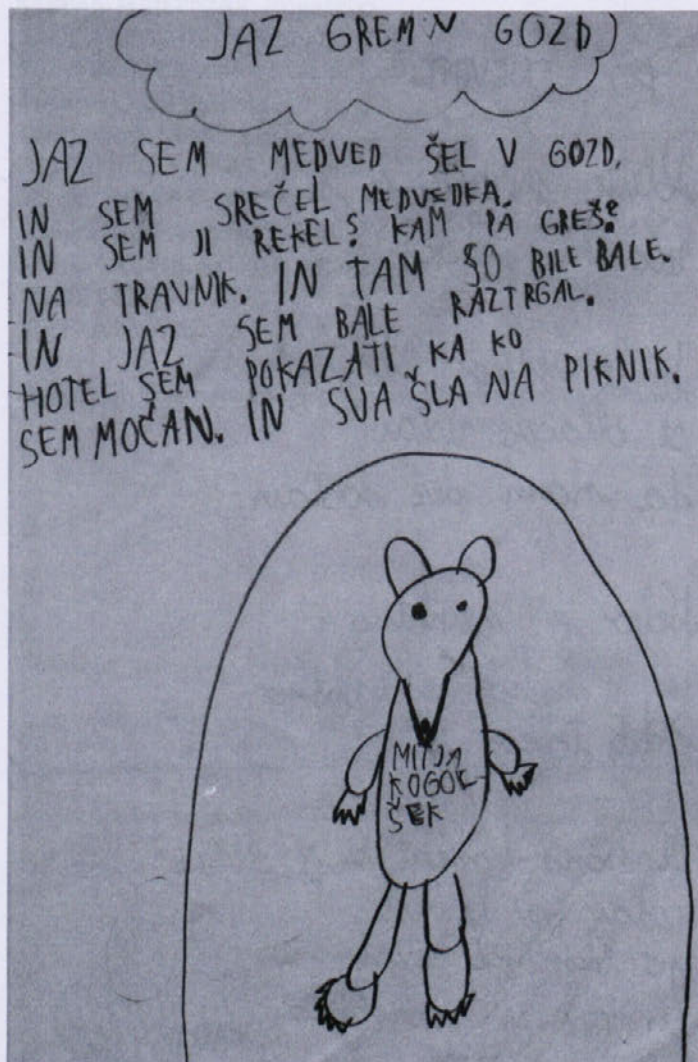 JAZ GREM V GOZD
JAZ SEM MEDVED ŠEL V GOZD.
IN SEM SREČEL MEDVEDKA.
IN SEM JI REKEL: KAM PA GREŠ?
NA TRAVNIK. IN TAM SO BILE BALE.
IN JAZ SEM BALE RAZTRGAL.
HOTEL SEM POKAZATI KA KO
SEM MOČAN. IN SVA ŠLA NA PIKNIK.
MITJA
KOGOL
ŠEK